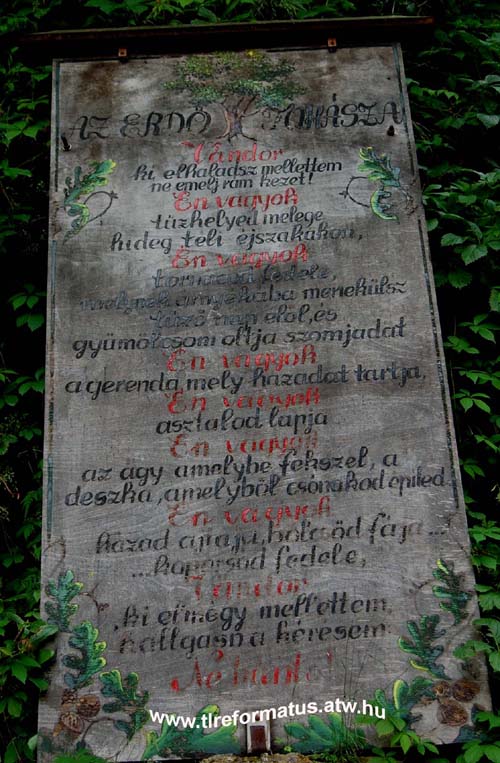 AZ ERDŐ FOHÁSZA
Vándor
ki elhaladsz mellettem
ne emelj rám kezet!
Én vagyok
tűzhelyed melege
hideg téli éjszakákon,
Én vagyok
tornácod fedele,
melynek árnyékába menekülsz
tűző nap elől, és
gyümölcsöm oltja szomjadat
Én vagyok
a gerenda, mely házadat tartja,
Én vagyok
asztalod lapja
Én vagyok
az ágy amelybe fekszel, a
deszka, amelyből csónakod építed
Én vagyok
házad ajtaja, bölcsőd fája...
...koporsód fedele,
Vándor
ki elmégy mellettem,
hallgasd a kérésem
Ne bánts!
www.tlreformatus.atw.hu